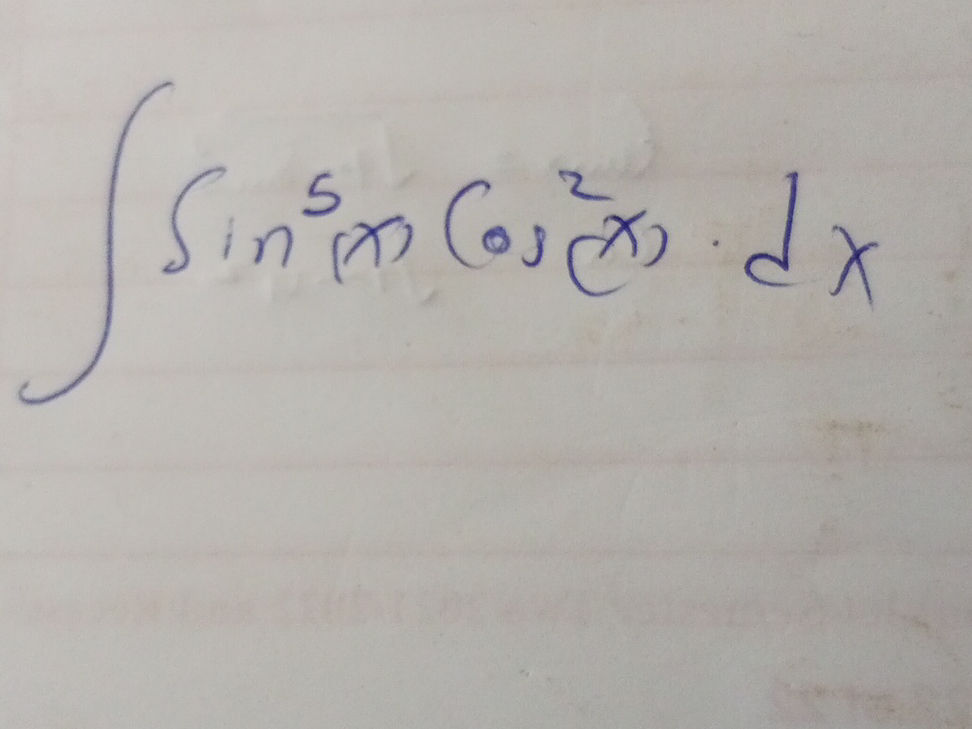 ∫ Sin⁵(x) Cos²(x) · dx